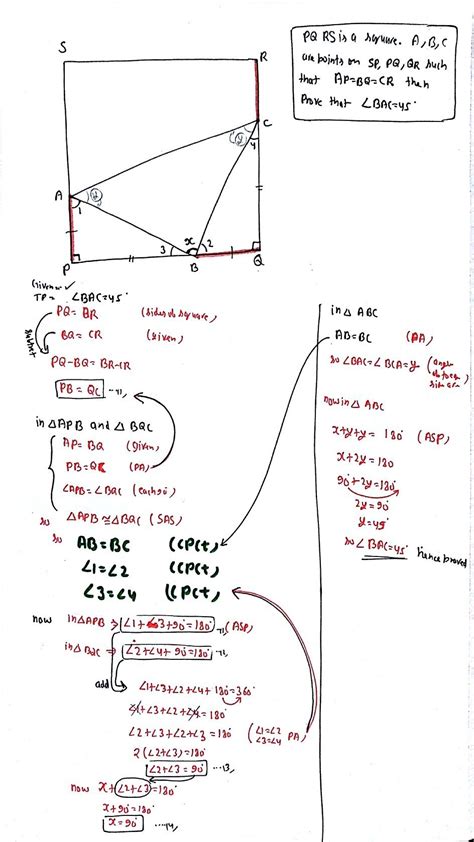 PQRS is a square. A, B, C
are points on SP, PQ, QR such
that AP=BQ=CR then
Prove that ∠BAC=45°
S
R
C
y
4
A
y
1
3
x
2
P
B
Q
Given = ✓
TP = ∠BAC=45°
PQ = BR (sides of square)
BQ = CR (given)
subtract
PQ-BQ = BR-CR
PB = QC ...(1)
in △APB and △BQC
AP = BQ (given)
PB = QC (PA)
∠APB = ∠BQC (each 90°)
so △APB ≅ △BQC (SAS)
so AB=BC (CPCt)
∠1=∠2 (CPCt)
∠3=∠4 (CPCt)
now in△APB → ∠1+∠3+90=180° (ASP)
in△BQC → ∠2+∠4+90=180°
add
∠1+∠3+∠2+∠4+180=360°
∠1+∠3+∠2+∠4=180°
∠2+∠3+∠2+∠3=180 (∠1=∠2 ∠3=∠4 PA)
2(∠2+∠3)=180°
∠2+∠3=90° ...(3)
now x+∠2+∠3=180°
x+90=180°
x=90° ...(4)
in △ ABC
AB=BC (PA)
so ∠BAC=∠BCA=y
now in △ ABC
x+y+y = 180° (ASP)
x+2y=180
90°+2y=180°
2y=90°
y=45°
so ∠BAC=45° hence proved